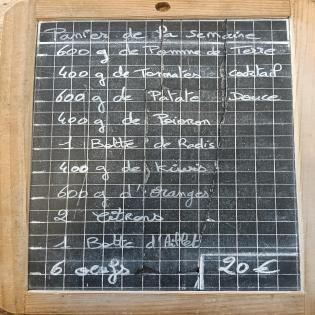 Panier de la semaine
600 g de Pomme de Terre
400 g de Tomates cocktail
600 g de Patate Douce
400 g de Poivron
1 Botte de Radis
400 g de Kiwis
600 g d'Oranges
2 Citrons
1 Botte d'Aillet
6 oeufs 20 €